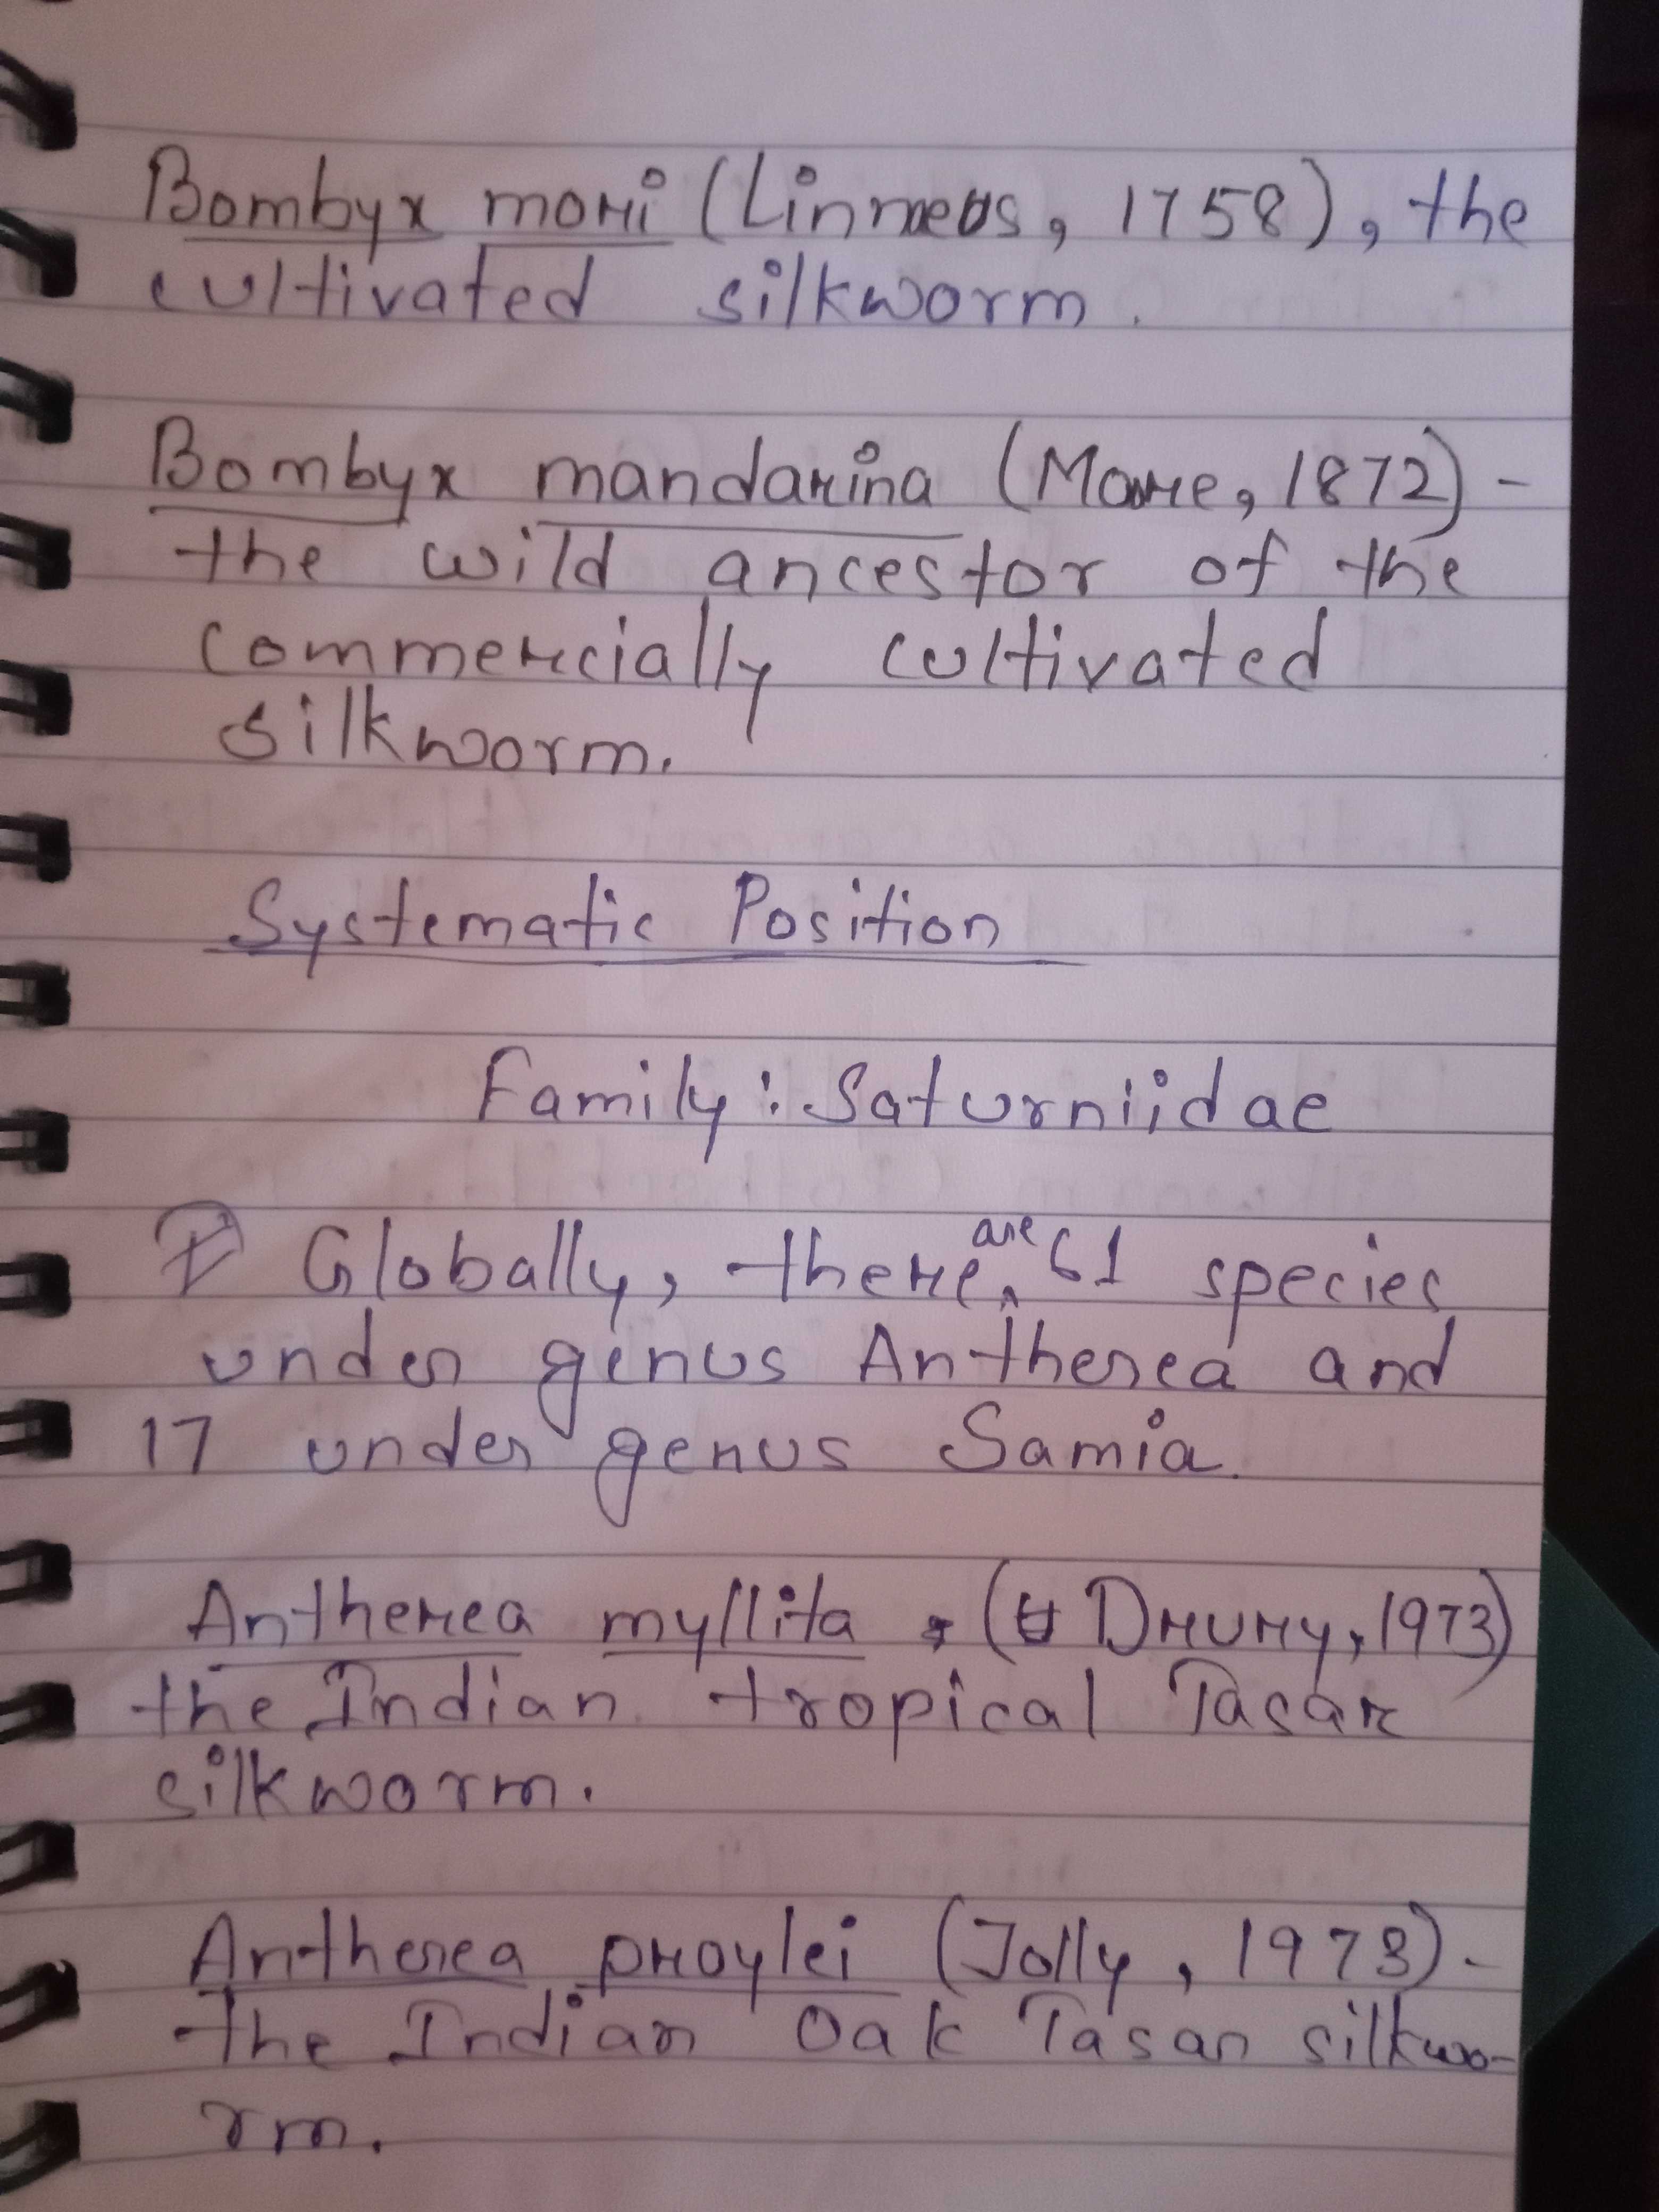 Bombyx mori (Linnaeus, 1758), the
cultivated silkworm.
Bombyx mandarina (Moore, 1872) -
the wild ancestor of the
commercially cultivated
silkworm.
Systematic Position
Family: Saturniidae
Globally, there are 61 species
under genus Antherea and
17 under genus Samia.
Antherea myllita (Drury, 1973)
the Indian tropical Tasar
silkworm.
Antherea proylei (Jolly, 1973) -
the Indian Oak Tasar silkwo-
rm.